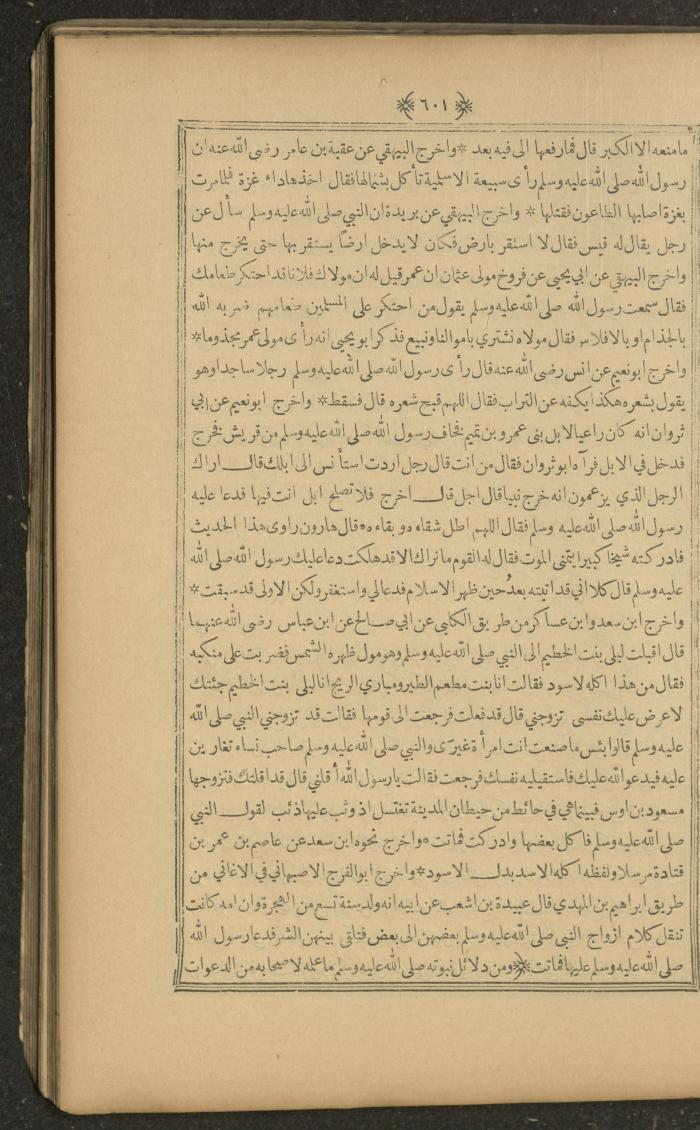 ٦٠١
مامنعه الا الكبر قال فما رفعها الى فيه بعد * واخرج البيهقي عن عقبة بن عامر رضى الله عنه ان
رسول الله صلى الله عليه وسلم رأى سبيعة الاسلمية تأكل بشمالها فقال اخذها داء غزة فلما مرت
بغزة اصابها الطاعون فقتلها * واخرج البيهقي عن بريدة ان النبي صلى الله عليه وسلم سأل عن
رجل يقال له قيس فقال لا استقر بارض فكان لا يدخل ارضًا يستقر بها حتى يخرج منها
واخرج البيهقي عن ابي يحيى عن فروخ مولى عثمان ان عمر قيل له ان مولاك فلانا قد احتكر طعامك
فقال سمعت رسول الله صلى الله عليه وسلم يقول من احتكر على المسلمين طعامهم ضربه الله
بالجذام او بالافلاس فقال مولاه نشتري باموالنا ونبيع فذكر ابو يحيى انه رأى مولى عمر مجذوما *
واخرج ابو نعيم عن انس رضى الله عنه قال رأى رسول الله صلى الله عليه وسلم رجلا ساجدا وهو
يقول بشعره هكذا يكفه عن التراب فقال اللهم قبح شعره قال فسقط * واخرج ابو نعيم عن ابي
ثروان انه كان راعيا لابل بنى عمرو بن تميم فخاف رسول الله صلى الله عليه وسلم من قريش فخرج
فدخل في الابل فرآه ابو ثروان فقال من انت قال رجل اردت استأنس الى ابلك قال اراك
الرجل الذي يزعمون انه خرج نبيا قال اجل قال اخرج فلا تصلح ابل انت فيها فدعا عليه
رسول الله صلى الله عليه وسلم فقال اللهم اطل شقاءه وبقاءه * قال هارون راوى هذا الحديث
فادركته شيخا كبيرا يتمنى الموت فقال له القوم ما نراك الا قد هلكت دعا عليك رسول الله صلى الله
عليه وسلم قال كلا اني قد اتيته بعدُ حين ظهر الاسلام فدعا لي واستغفر ولكن الاولى قد سبقت *
واخرج ابن سعد وابن عساكر من طريق الكلبى عن ابي صالح عن ابن عباس رضى الله عنهما
قال اقبلت ليلى بنت الخطيم الى النبي صلى الله عليه وسلم وهو مول ظهره الشمس فضربت على منكبه
فقال من هذا اكله لاسود فقالت انا بنت مطعم الطير ومباري الريح انا ليلى بنت الخطيم جئتك
لاعرض عليك نفسى تزوجني قال قد فعلت فرجعت الى قومها فقالت قد تزوجني النبي صلى الله
عليه وسلم قالوا بئس ما صنعت انت امرأة غيرى والنبي صلى الله عليه وسلم صاحب نساء تغارين
عليه فيدعو الله عليك فاستقيليه نفسك فرجعت فقالت يا رسول الله أقلني قال قد اقلتك فتزوجها
مسعود بن اوس فبينما هي في حائط من حيطان المدينة تغتسل اذ وثب عليها ذئب لقول النبي
صلى الله عليه وسلم فاكل بعضها وادركت فماتت * واخرج نحوه ابن سعد عن عاصم بن عمر بن
قتادة مرسلا ولفظه اكله الاسد بدل الاسود * واخرج ابو الفرج الاصبهاني في الاغاني من
طريق ابراهيم بن المهدي قال عبيدة بن اشعب عن ابيه انه ولد سنة تسع من الهجرة وان امه كانت
تنقل كلام ازواج النبي صلى الله عليه وسلم بعضهن الى بعض فتلقي بينهن الشر فدعا رسول الله
صلى الله عليه وسلم عليها فماتت * ومن دلائل نبوته صلى الله عليه وسلم ما علمه لاصحابه من الدعوات